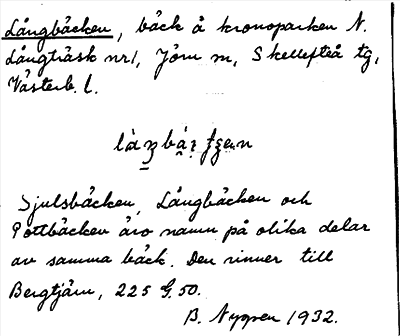 Långbäcken, bäck å kronoparken N.
Långträsk nr 1, Jörn sn, Skellefteå tg,
Västerb. l.
Sjulsbäcken, Långbäcken och
Pottbäcken äro namn på olika delar
av samma bäck. Den rinner till
Bergtjärn, 225 G. 50.
B. Nygren 1932.